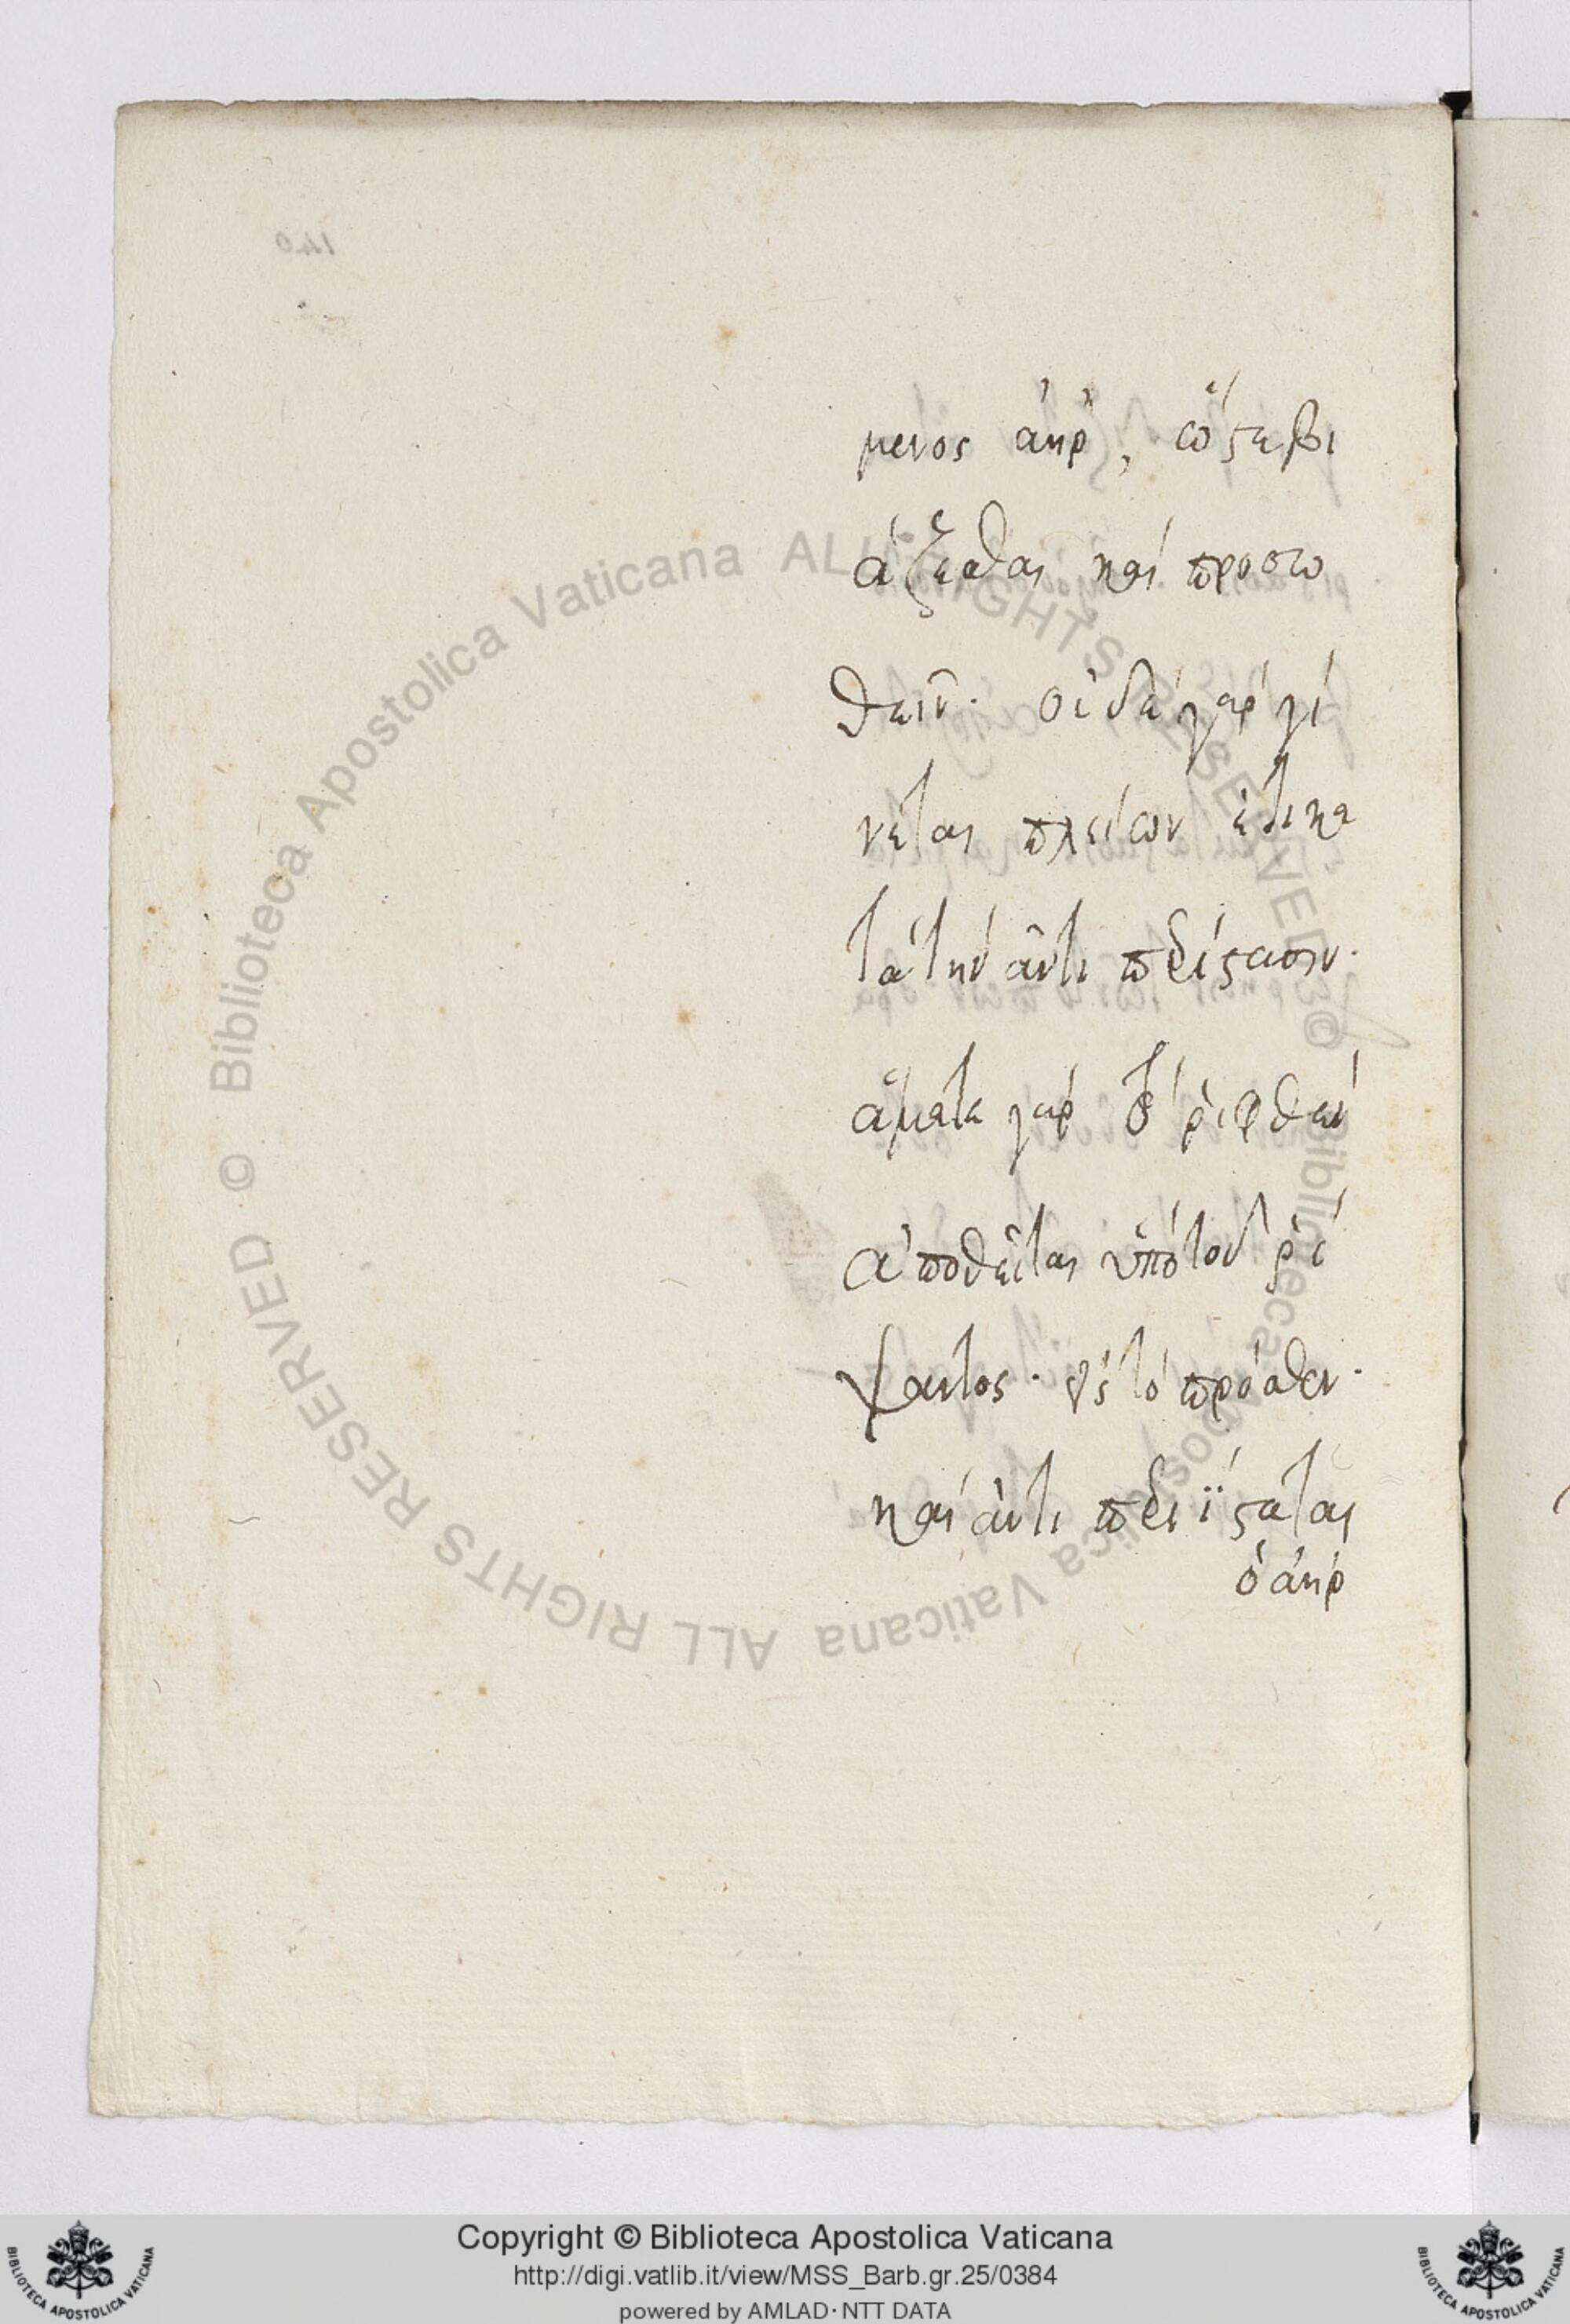 μενος ἀὴρ, ὥστε βι
άζεσθαι καὶ προσω
θεῖν. οὐδὲ γὰρ γί
νεται πλείων ἐπὶ κα
τὰ τὴν ἀντιπερίστασιν.
ἅμα τε γὰρ τὸ ῥιφθὲν
ἀπωθεῖται ὑπὸ τοῦ ῥί
ψαντος. εἰς τὸ πρόσθεν.
καὶ ἀντιπεριΐσταται
ὁ ἀὴρ
140
Biblioteca Apostolica Vaticana ALL RIGHTS RESERVED ©
Biblioteca Apostolica Vaticana ALL RIGHTS RESERVED ©
Copyright © Biblioteca Apostolica Vaticana
http://digi.vatlib.it/view/MSS_Barb.gr.25/0384
powered by AMLAD·NTT DATA
BIBLIOTECA APOSTOLICA VATICANA
BIBLIOTECA APOSTOLICA VATICANA